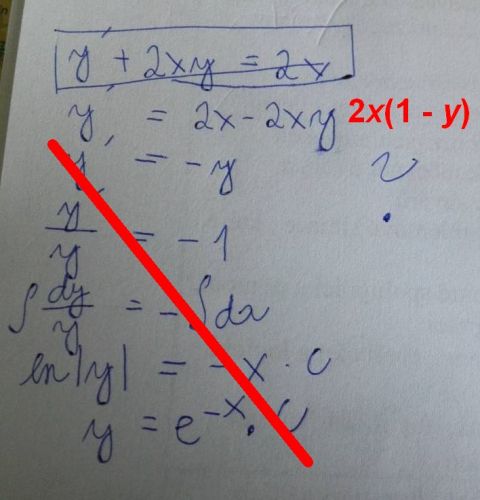 y' + 2xy = 2x
y' = 2x - 2xy 2x(1 - y)
y' = -y ?
y'/y = -1
∫ dy/y = -∫ dx
ln|y| = -x · C
y = e^-x · C